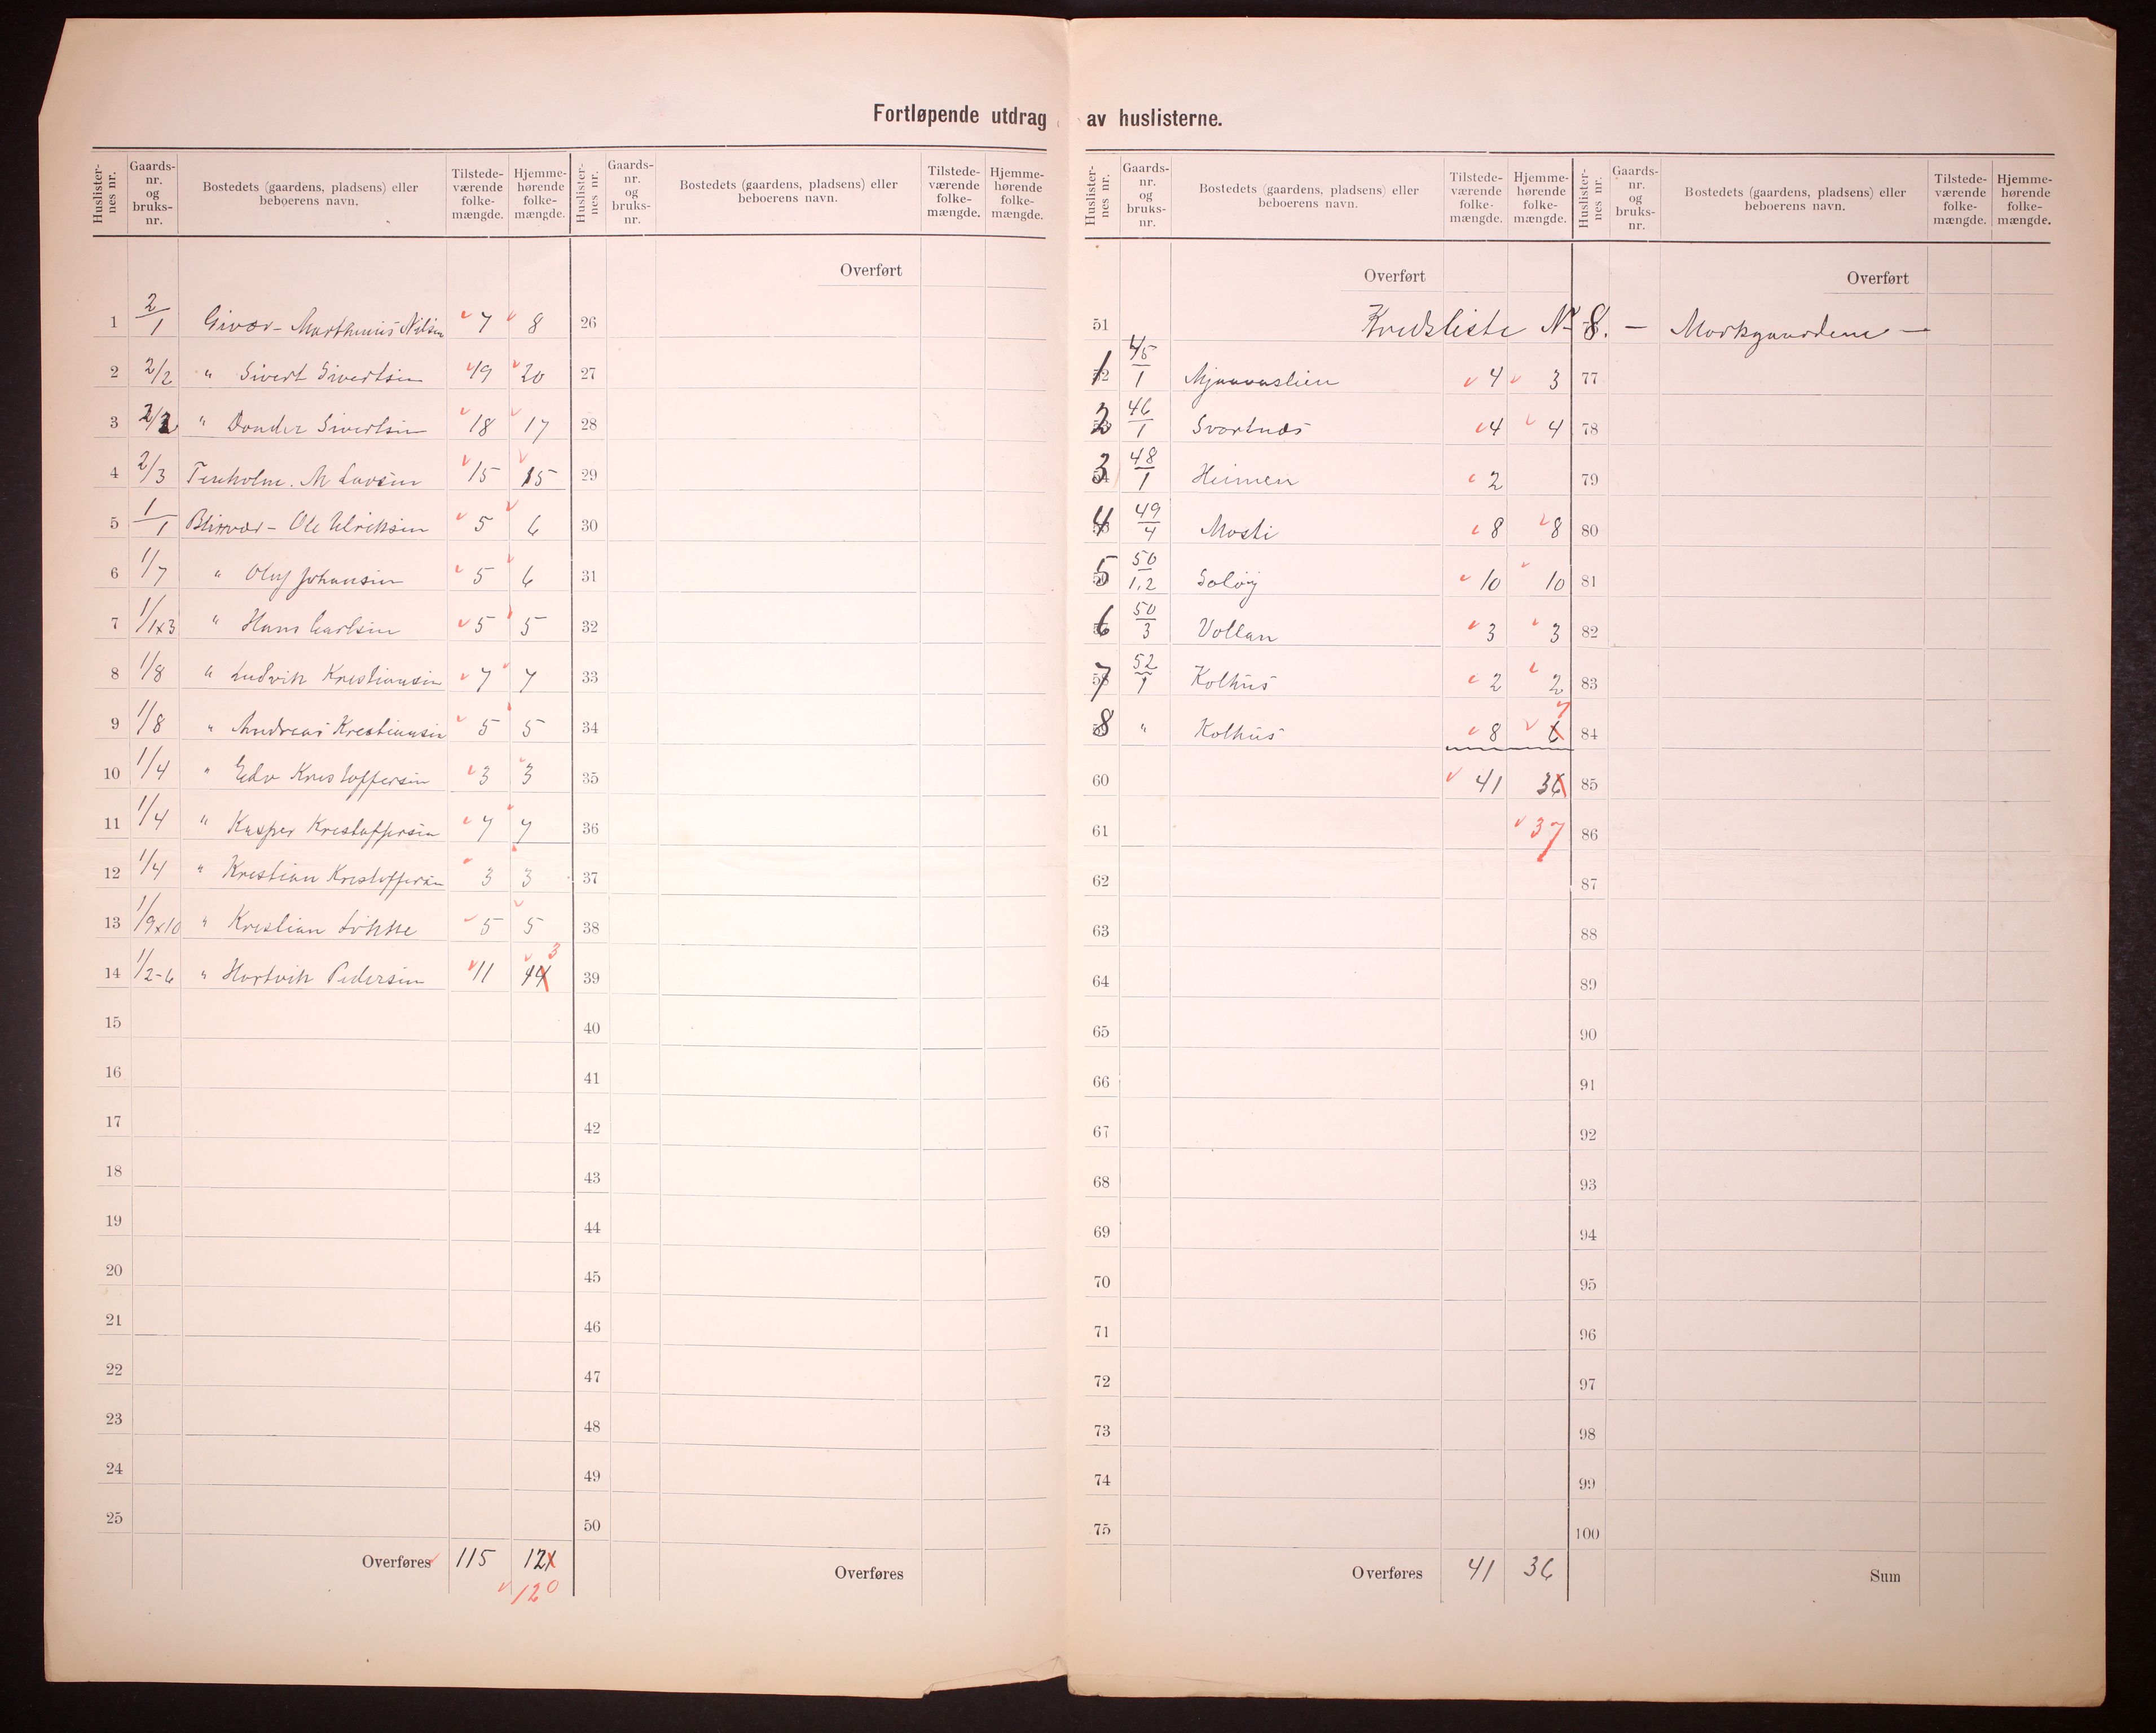 Fortløpende utdrag av huslisterne.
Huslister- nes nr. Gaards- nr. og bruks- nr. Bostedets (gaardens, pladsens) eller beboerens navn. Tilstede- værende folke- mængde. Hjemme- hørende folke- mængde.
Huslister- nes nr. Gaards- nr. og bruks- nr. Bostedets (gaardens, pladsens) eller beboerens navn. Tilstede- værende folke- mængde. Hjemme- hørende folke- mængde.
1 2/1 Givær - Marthinus Nilsen 7 8
2 2/2 " Sivert Sivertsen 19 20
3 2/2 " Donder Sivertsen 18 17
4 2/3 Fenholm. M Larsen 15 15
5 1/1 Blixvær - Ole Ulriksen 5 6
6 1/7 " Oluf Johansen 5 6
7 1/1x3 " Hans Carlsen 5 5
8 1/8 " Ludvik Kristiansen 7 7
9 1/8 " Andreas Kristiansen 5 5
10 1/4 " Edv Kristoffersen 3 3
11 1/4 " Kasper Kristoffersen 7 7
12 1/4 " Kristian Kristoffersen 3 3
13 1/9x10 " Kristian Løkke 5 5
14 1/2-6 " Hartvik Pedersen 11 14 3
15
16
17
18
19
20
21
22
23
24
25
Overføres 115 121
120
Overført
26
27
28
29
30
31
32
33
34
35
36
37
38
39
40
41
42
43
44
45
46
47
48
49
50
Overføres
Huslister- nes nr. Gaards- nr. og bruks- nr. Bostedets (gaardens, pladsens) eller beboerens navn. Tilstede- værende folke- mængde. Hjemme- hørende folke- mængde.
Huslister- nes nr. Gaards- nr. og bruks- nr. Bostedets (gaardens, pladsens) eller beboerens navn. Tilstede- værende folke- mængde. Hjemme- hørende folke- mængde.
Overført
51 Kredsliste No 8. - Markgaardene -
1 45/1 4 3
2 46/1 Svartnes 4 4
3 48/1 Heimen 2
4 49/4 Mosti 8 8
5 50/1,2 Soløy 10 10
6 50/3 Vollan 3 3
7 52/1 Kolhus 2 2
8 " Kolhus 8 6 7
60 41 36
61 37
62
63
64
65
66
67
68
69
70
71
72
73
74
75
Overføres 41 36
Overført
77
78
79
80
81
82
83
84
85
86
87
88
89
90
91
92
93
94
95
96
97
98
99
100
Sum